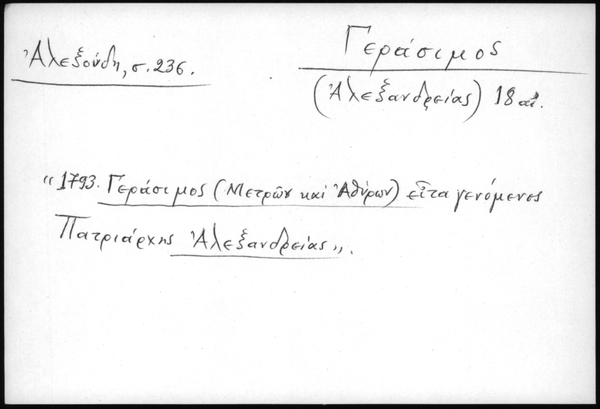 Ἀλεξούδη, σ. 236.
Γεράσιμος
(Ἀλεξανδρείας) 18 αἰ.
"1793. Γεράσιμος (Μετρῶν καὶ Ἀθύρων) εἶτα γενόμενος
Πατριάρχης Ἀλεξανδρείας".